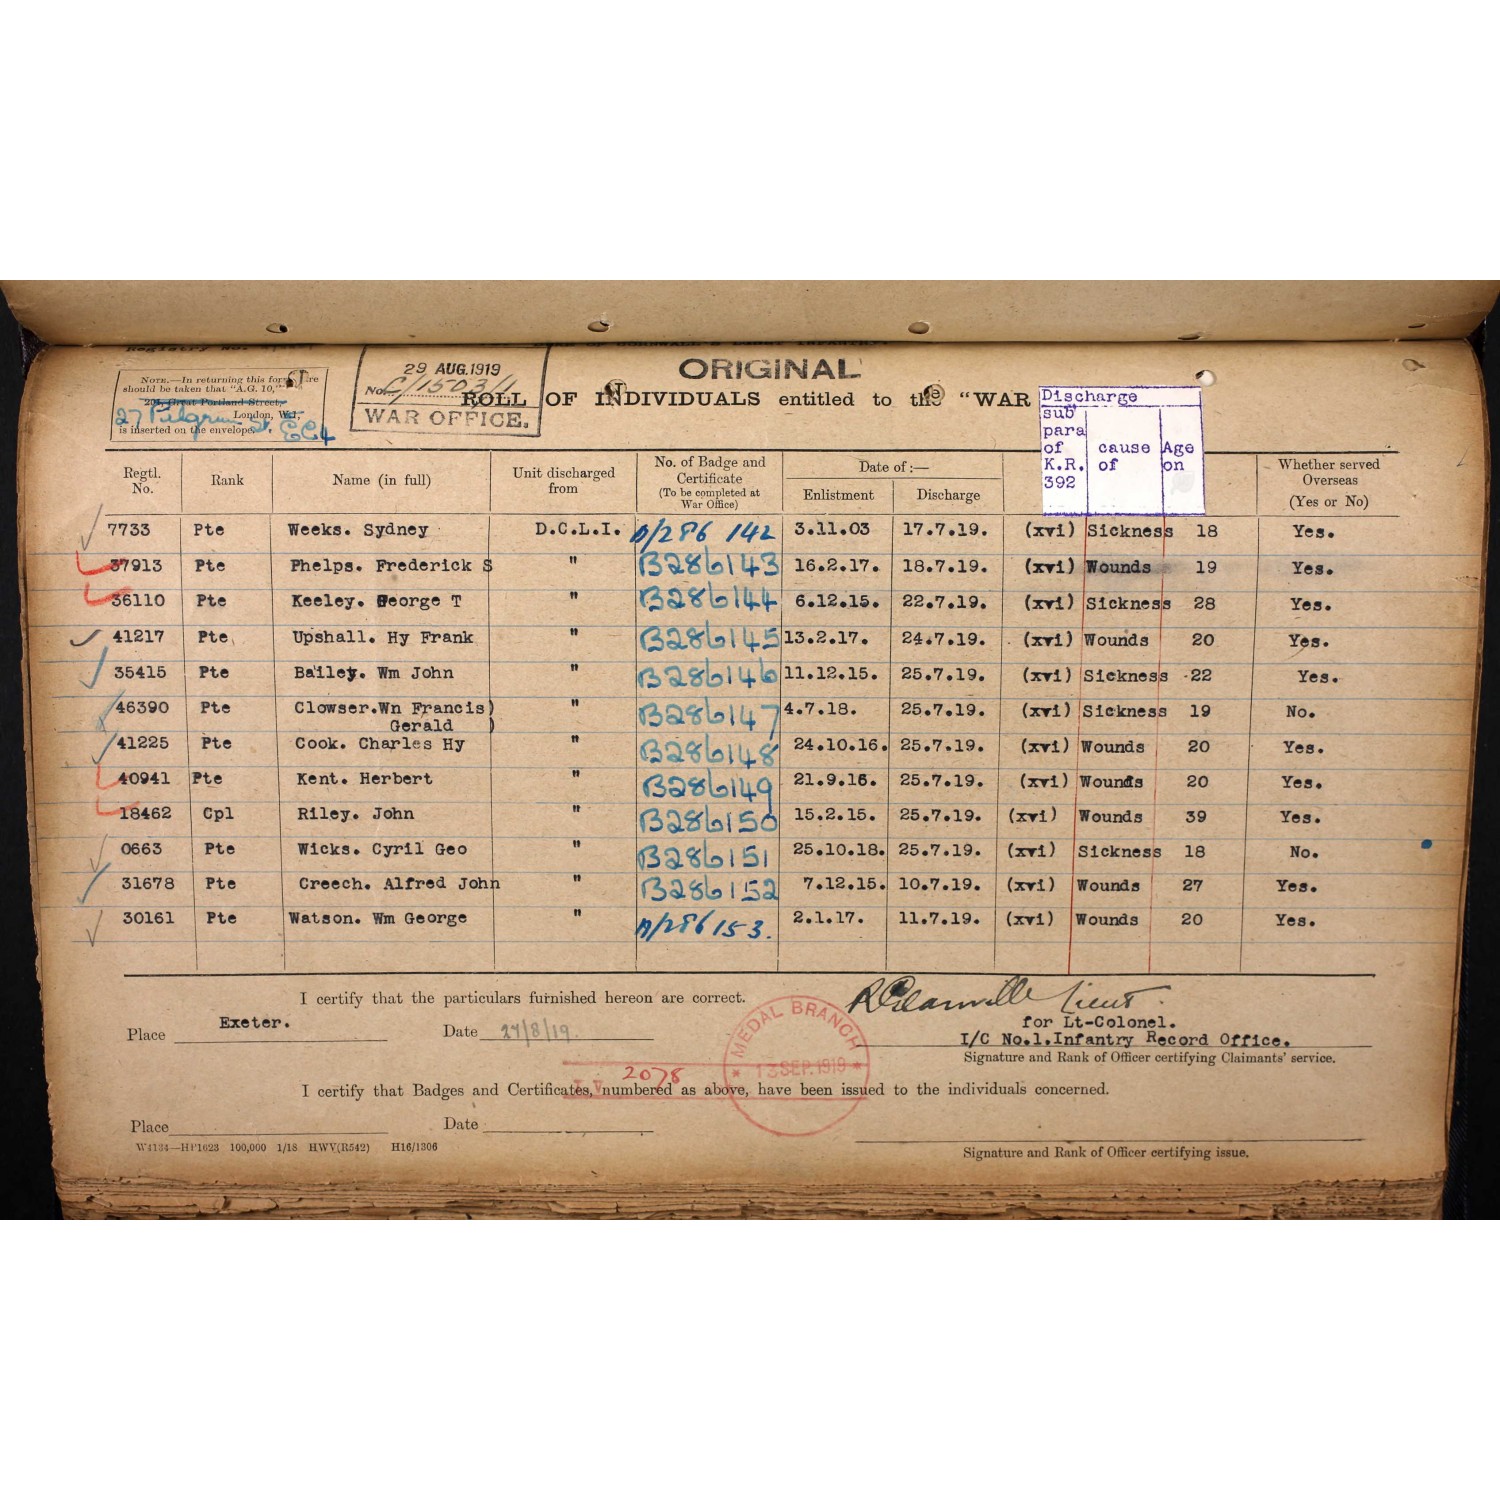 ORIGINAL
NOTE.—In returning this form
should be taken that "A.G. 10,"
Great Portland Street,
27 Pilgrim St. London, W.1, EC4
is inserted on the envelope.
29 AUG.1919
No. C/1503/1
WAR OFFICE.
ROLL OF INDIVIDUALS entitled to the "WAR
Discharge
sub para of K.R. 392
cause of
Age on
Regtl. No. Rank Name (in full) Unit discharged from No. of Badge and Certificate (To be completed at War Office) Date of:— Enlistment Discharge Whether served Overseas (Yes or No)
7733 Pte Weeks. Sydney D.C.L.I. B/286 142 3.11.03 17.7.19. (xvi) Sickness 18 Yes.
37913 Pte Phelps. Frederick S " B286143 16.2.17. 18.7.19. (xvi) Wounds 19 Yes.
36110 Pte Keeley. George T " B286144 6.12.15. 22.7.19. (xvi) Sickness 28 Yes.
41217 Pte. Upshall. Hy Frank " B286145 13.2.17. 24.7.19. (xvi) Wounds 20 Yes.
35415 Pte Bailey. Wm John " B286146 11.12.15. 25.7.19. (xvi) Sickness 22 Yes.
46390 Pte Clowser.Wn Francis) " B286147 4.7.18. 25.7.19. (xvi) Sickness 19 No.
Gerald )
41225 Pte Cook. Charles Hy " B286148 24.10.16. 25.7.19. (xvi) Wounds 20 Yes.
40941 Pte Kent. Herbert " B286149 21.9.16. 25.7.19. (xvi) Wounds 20 Yes.
18462 Cpl Riley. John " B286150 15.2.15. 25.7.19. (xvi) Wounds 39 Yes.
0663 Pte Wicks. Cyril Geo " B286151 25.10.18. 25.7.19. (xvi) Sickness 18 No.
31678 Pte Creech. Alfred John " B286152 7.12.15. 10.7.19. (xvi) Wounds 27 Yes.
30161 Pte Watson. Wm George " B/286153. 2.1.17. 11.7.19. (xvi) Wounds 20 Yes.
I certify that the particulars furnished hereon are correct.
Place Exeter. Date 27/8/19.
Lieut.
for Lt-Colonel.
I/C No.1.Infantry Record Office.
Signature and Rank of Officer certifying Claimants' service.
MEDAL BRANCH
13 SEP.1919
2078
I certify that Badges and Certificates, numbered as above, have been issued to the individuals concerned.
Place Date
W4134—HP1623 100,000 1/18 HWV(R542) H16/1306
Signature and Rank of Officer certifying issue.